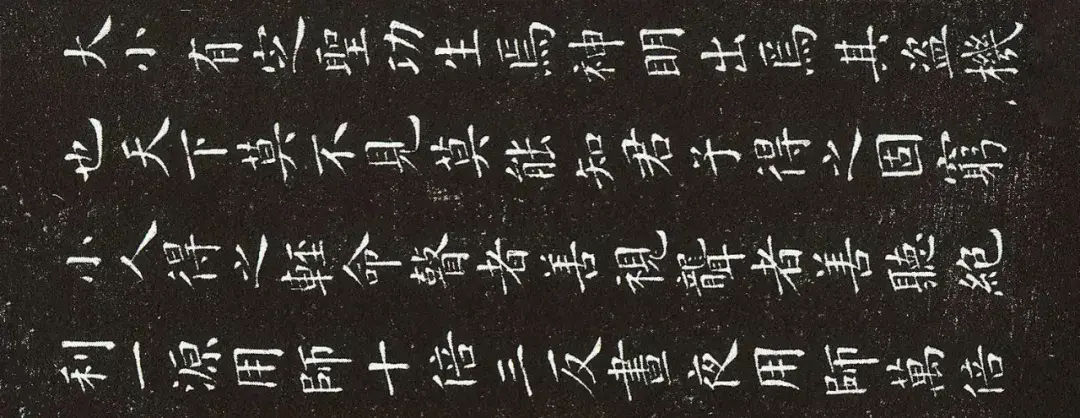 大小有定聖功生焉神明出焉其盜機
也天下莫不見莫能知君子得之固窮
小人得之輕命瞽者善視聾者善聽絕
利一源用師十倍三反晝夜用師萬倍